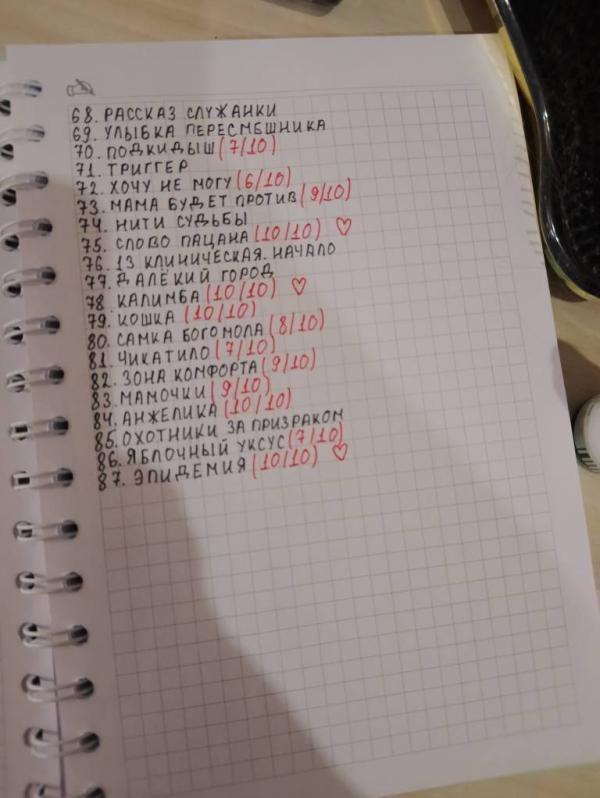 68. РАССКАЗ СЛУЖАНКИ
69. УЛЫБКА ПЕРЕСМЕШНИКА
70. ПОДКИДЫШ (7/10)
71. ТРИГГЕР
72. ХОЧУ НЕ МОГУ (6/10)
73. МАМА БУДЕТ ПРОТИВ (9/10)
74. НИТИ СУДЬБЫ
75. СЛОВО ПАЦАНА (10/10) ♡
76. 13 КЛИНИЧЕСКАЯ. НАЧАЛО
77. ДАЛЁКИЙ ГОРОД
78. КАЛИМБА (10/10) ♡
79. КОШКА (10/10)
80. САМКА БОГОМОЛА (8/10)
81. ЧИКАТИЛО (7/10)
82. ЗОНА КОМФОРТА (9/10)
83. МАМОЧКИ (9/10)
84. АНЖЕЛИКА (10/10)
85. ОХОТНИКИ ЗА ПРИЗРАКОМ
86. ЯБЛОЧНЫЙ УКСУС (7/10)
87. ЭПИДЕМИЯ (10/10) ♡